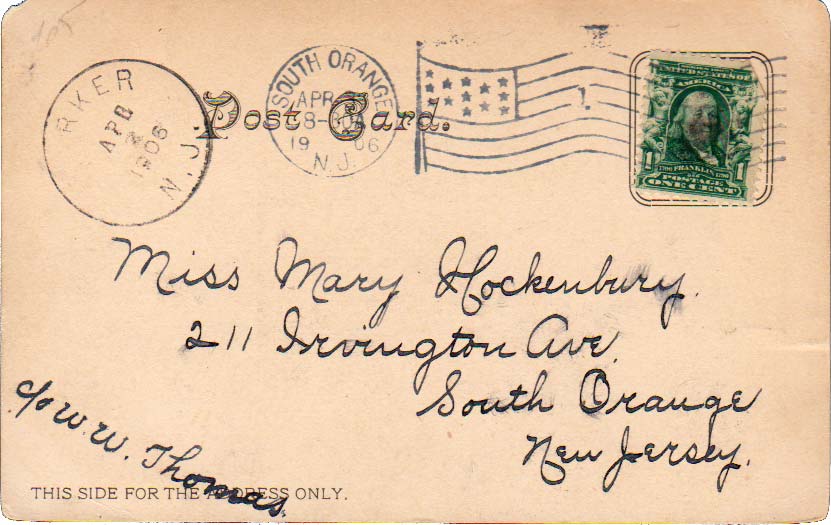 RKER
APR
2
1906
N.J.
SOUTH ORANGE
APR
19 06
N.J.
Post Card.
1
UNITED STATES OF
AMERICA
1706 FRANKLIN 1790
1 POSTAGE 1
ONE CENT
Miss Mary Hockenbury.
211 Irvington Ave.
South Orange
New Jersey.
c/o W. W. Thomas.
THIS SIDE FOR THE ADDRESS ONLY.